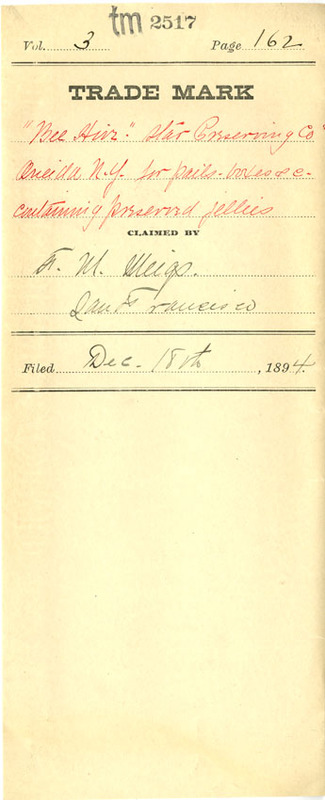 tm 2517
Vol. 3 Page 162
TRADE MARK
"Bee Hive." Star Preserving Co"
Oneida N.Y. for pails-boxes &c-
containing preserved jellies
CLAIMED BY
F. M. Meigs.
San Francisco
Filed Dec. 18th, 1894.